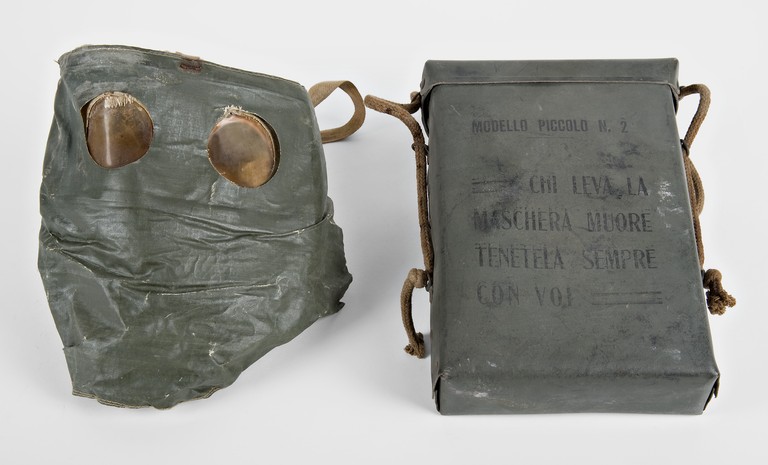 MODELLO PICCOLO N. 2
CHI LEVA LA
MASCHERA MUORE
TENETELA SEMPRE
CON VOI